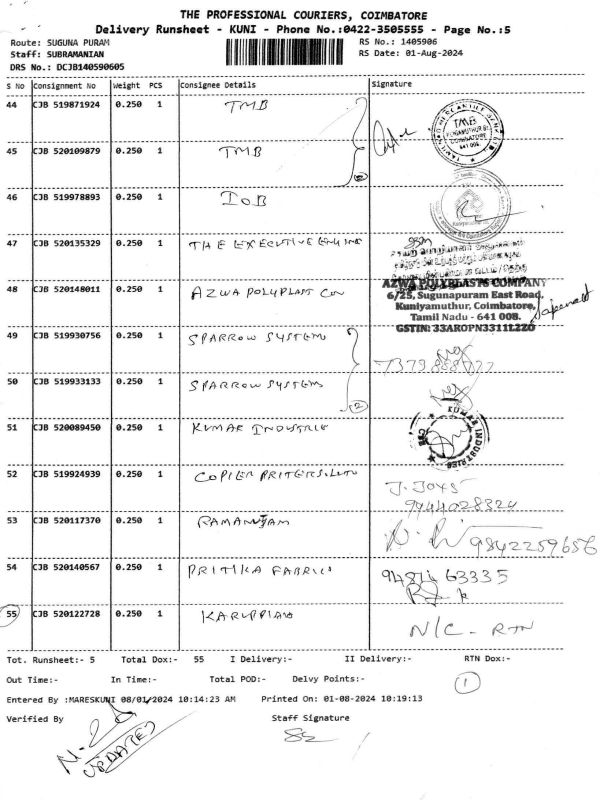 THE PROFESSIONAL COURIERS, COIMBATORE
Delivery Runsheet - KUNI - Phone No.:0422-3505555 - Page No.:5
Route: SUGUNA PURAM RS No.: 1405906
Staff: SUBRAMANIAN RS Date: 01-Aug-2024
DRS No.: DCJB140590605
S No Consignment No Weight PCS Consignee Details Signature
44 CJB 519871924 0.250 1 TMB
TMB
COIMBATORE
641 008
45 CJB 520109879 0.250 1 TMB
2
46 CJB 519978893 0.250 1 IOB
47 CJB 520135329 0.250 1 THE EXECUTIVE
48 CJB 520148011 0.250 1 AZWA POLYPLAST
AZWA POLYPLASTS COMPANY
6/25, Sugunapuram East Road,
Kuniyamuthur, Coimbatore,
Tamil Nadu - 641 008.
GSTIN: 33AROPN3311L2ZO
49 CJB 519930756 0.250 1 SPARROW SYSTEMS
50 CJB 519933133 0.250 1 SPARROW SYSTEMS
2
51 CJB 520089450 0.250 1 KUMAR INDUSTRIE
KUMAR INDUSTRIES CBE
52 CJB 519924939 0.250 1 COPIER PRITERS.
9944028324
53 CJB 520117370 0.250 1 RAMANUJAM
9842259656
54 CJB 520140567 0.250 1 PRITIKA FABRICS
94874 63335
55 CJB 520122728 0.250 1 KARUPPIAH
N/C - RTN
Tot. Runsheet:- 5 Total Dox:- 55 I Delivery:- II Delivery:- RTN Dox:-
Out Time:- In Time:- Total POD:- Delvy Points:- 1
Entered By :MARESKUNI 08/01/2024 10:14:23 AM Printed On: 01-08-2024 10:19:13
Verified By Staff Signature
UPDATED